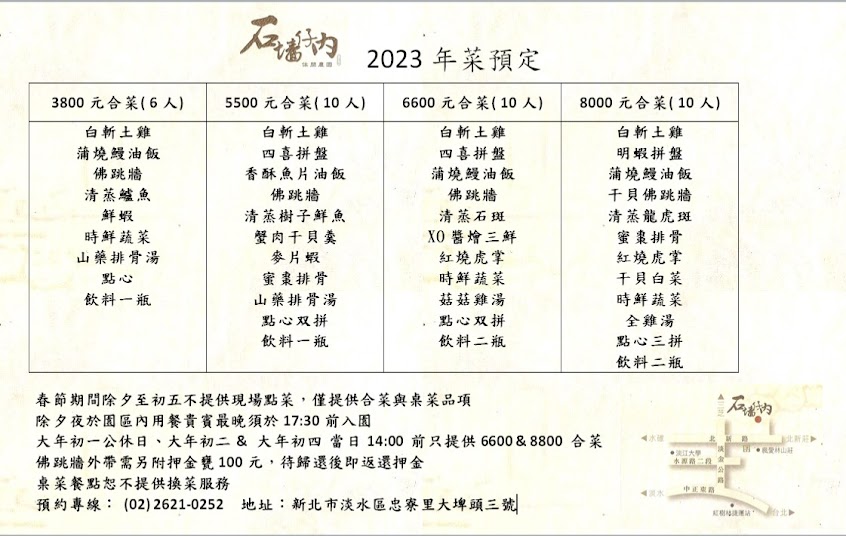 石墻仔內
休閒農園
2023 年菜預定
3800 元合菜( 6 人)
白斬土雞
蒲燒鰻油飯
佛跳牆
清蒸鱸魚
鮮蝦
時鮮蔬菜
山藥排骨湯
點心
飲料一瓶
5500 元合菜( 10 人)
白斬土雞
四喜拼盤
香酥魚片油飯
佛跳牆
清蒸樹子鮮魚
蟹肉干貝羹
麥片蝦
蜜棗排骨
山藥排骨湯
點心双拼
飲料一瓶
6600 元合菜( 10 人)
白斬土雞
四喜拼盤
蒲燒鰻油飯
佛跳牆
清蒸石斑
XO 醬燴三鮮
紅燒虎掌
時鮮蔬菜
菇菇雞湯
點心双拼
飲料二瓶
8000 元合菜( 10 人)
白斬土雞
明蝦拼盤
蒲燒鰻油飯
干貝佛跳牆
清蒸龍虎斑
蜜棗排骨
紅燒虎掌
干貝白菜
時鮮蔬菜
全雞湯
點心三拼
飲料二瓶
春節期間除夕至初五不提供現場點菜，僅提供合菜與桌菜品項
除夕夜於園區內用餐貴賓最晚須於 17:30 前入園
大年初一公休日、大年初二 & 大年初四 當日 14:00 前只提供 6600 & 8800 合菜
佛跳牆外帶需另附押金甕 100 元，待歸還後即返還押金
桌菜餐點恕不提供換菜服務
預約專線： (02) 2621-0252 地址：新北市淡水區忠寮里大埤頭三號
石墻仔內
三芝
水碓
北新路
北新莊
淡江大學
水源路二段
淡金公路
瘋愛林山莊
淡水
中正東路
紅樹林捷運站
台北